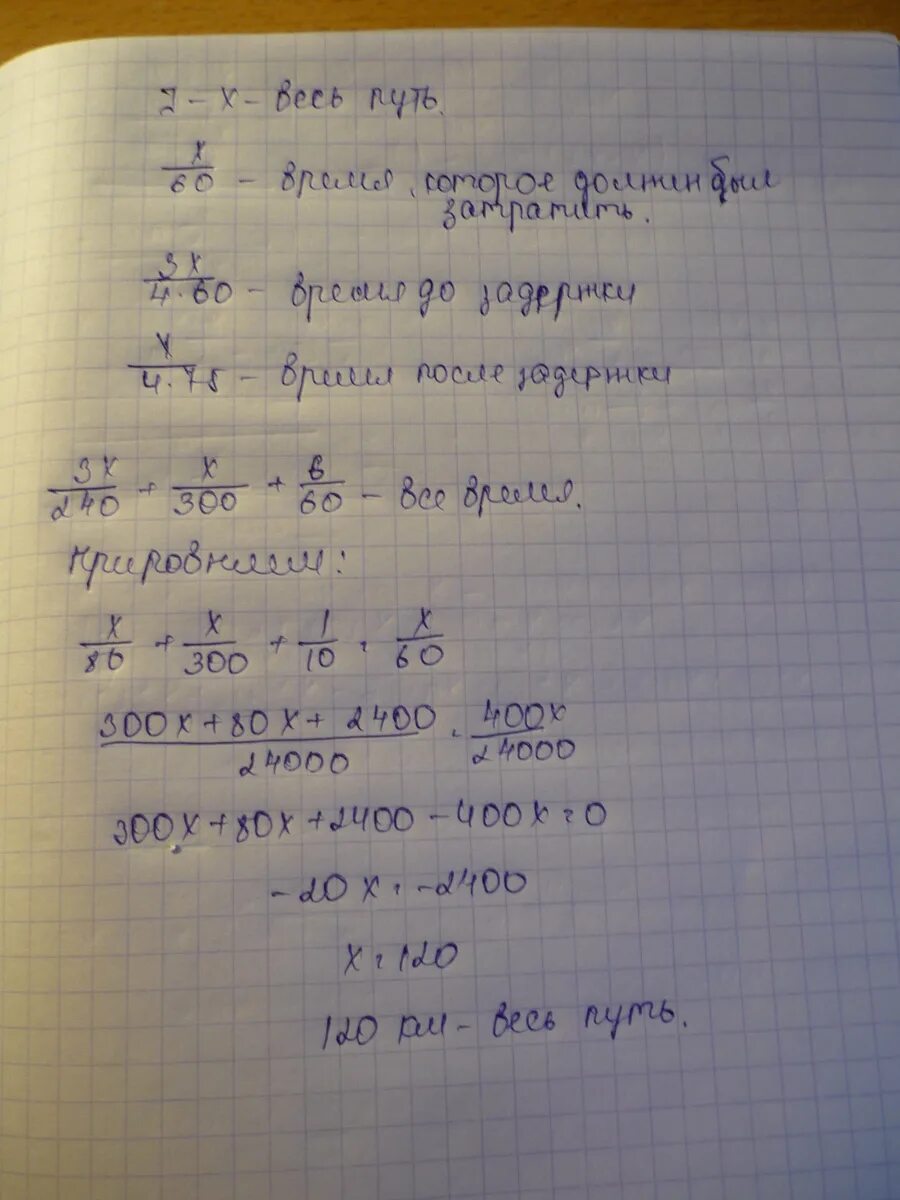 7 - х - весь путь.
х/60 - время, которое должен был
затратить.
3х/4·60 - время до задержки
х/4·75 - время после задержки
3х/240 + х/300 + 6/60 - все время.
Прировняем:
х/80 + х/300 + 1/10 = х/60
300х + 80х + 2400/24000 = 400х/24000
300х + 80х + 2400 - 400х = 0
-20х = -2400
х = 120
120 км - весь путь.